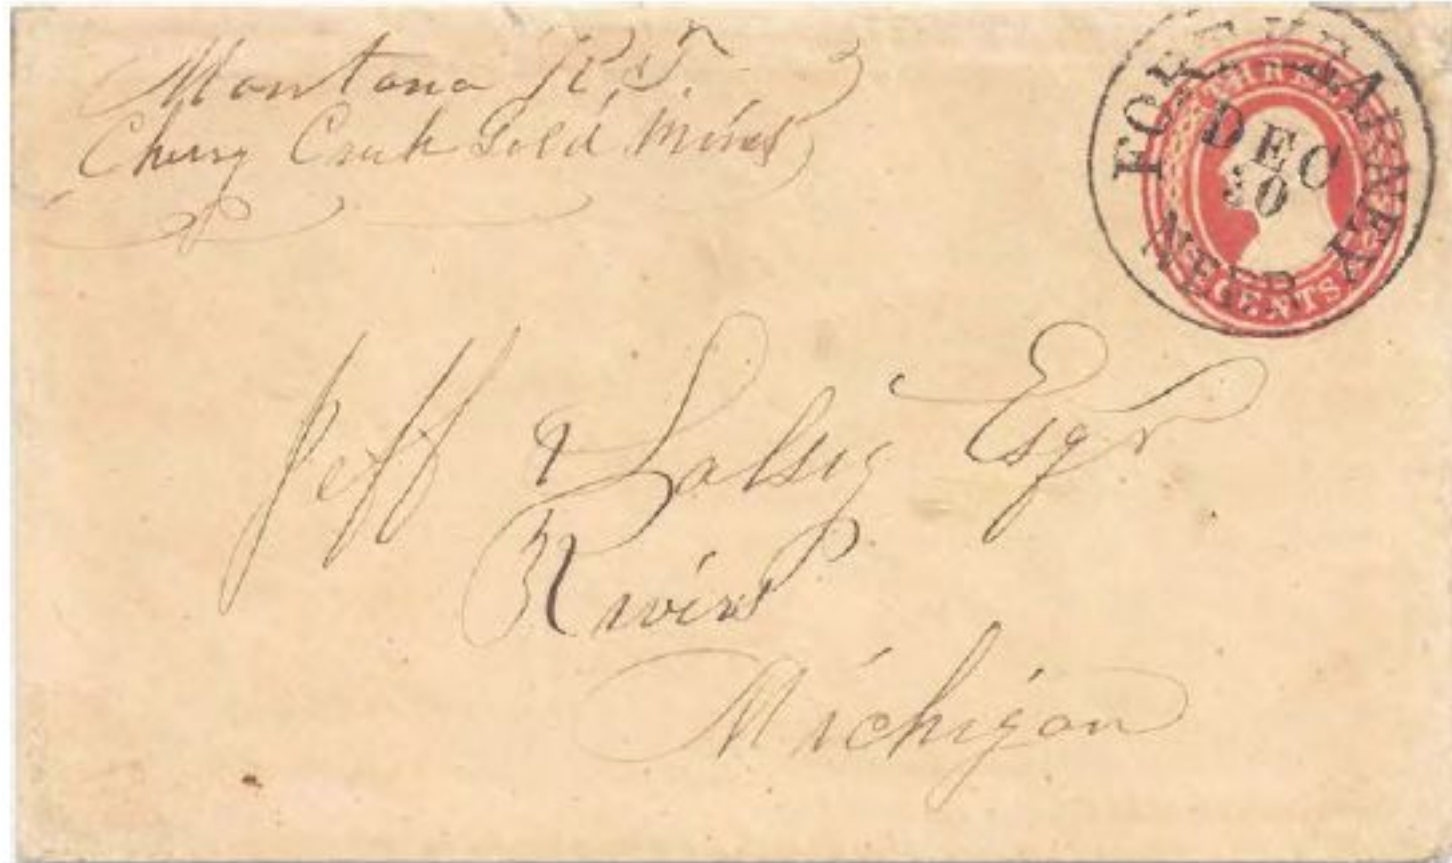 Montana K.T.
Cherry Creek Gold Mines
FORT KEARNEY
DEC
NEB
THREE
CENTS
Jeff & Salsig Esqr
Rives
Michigan